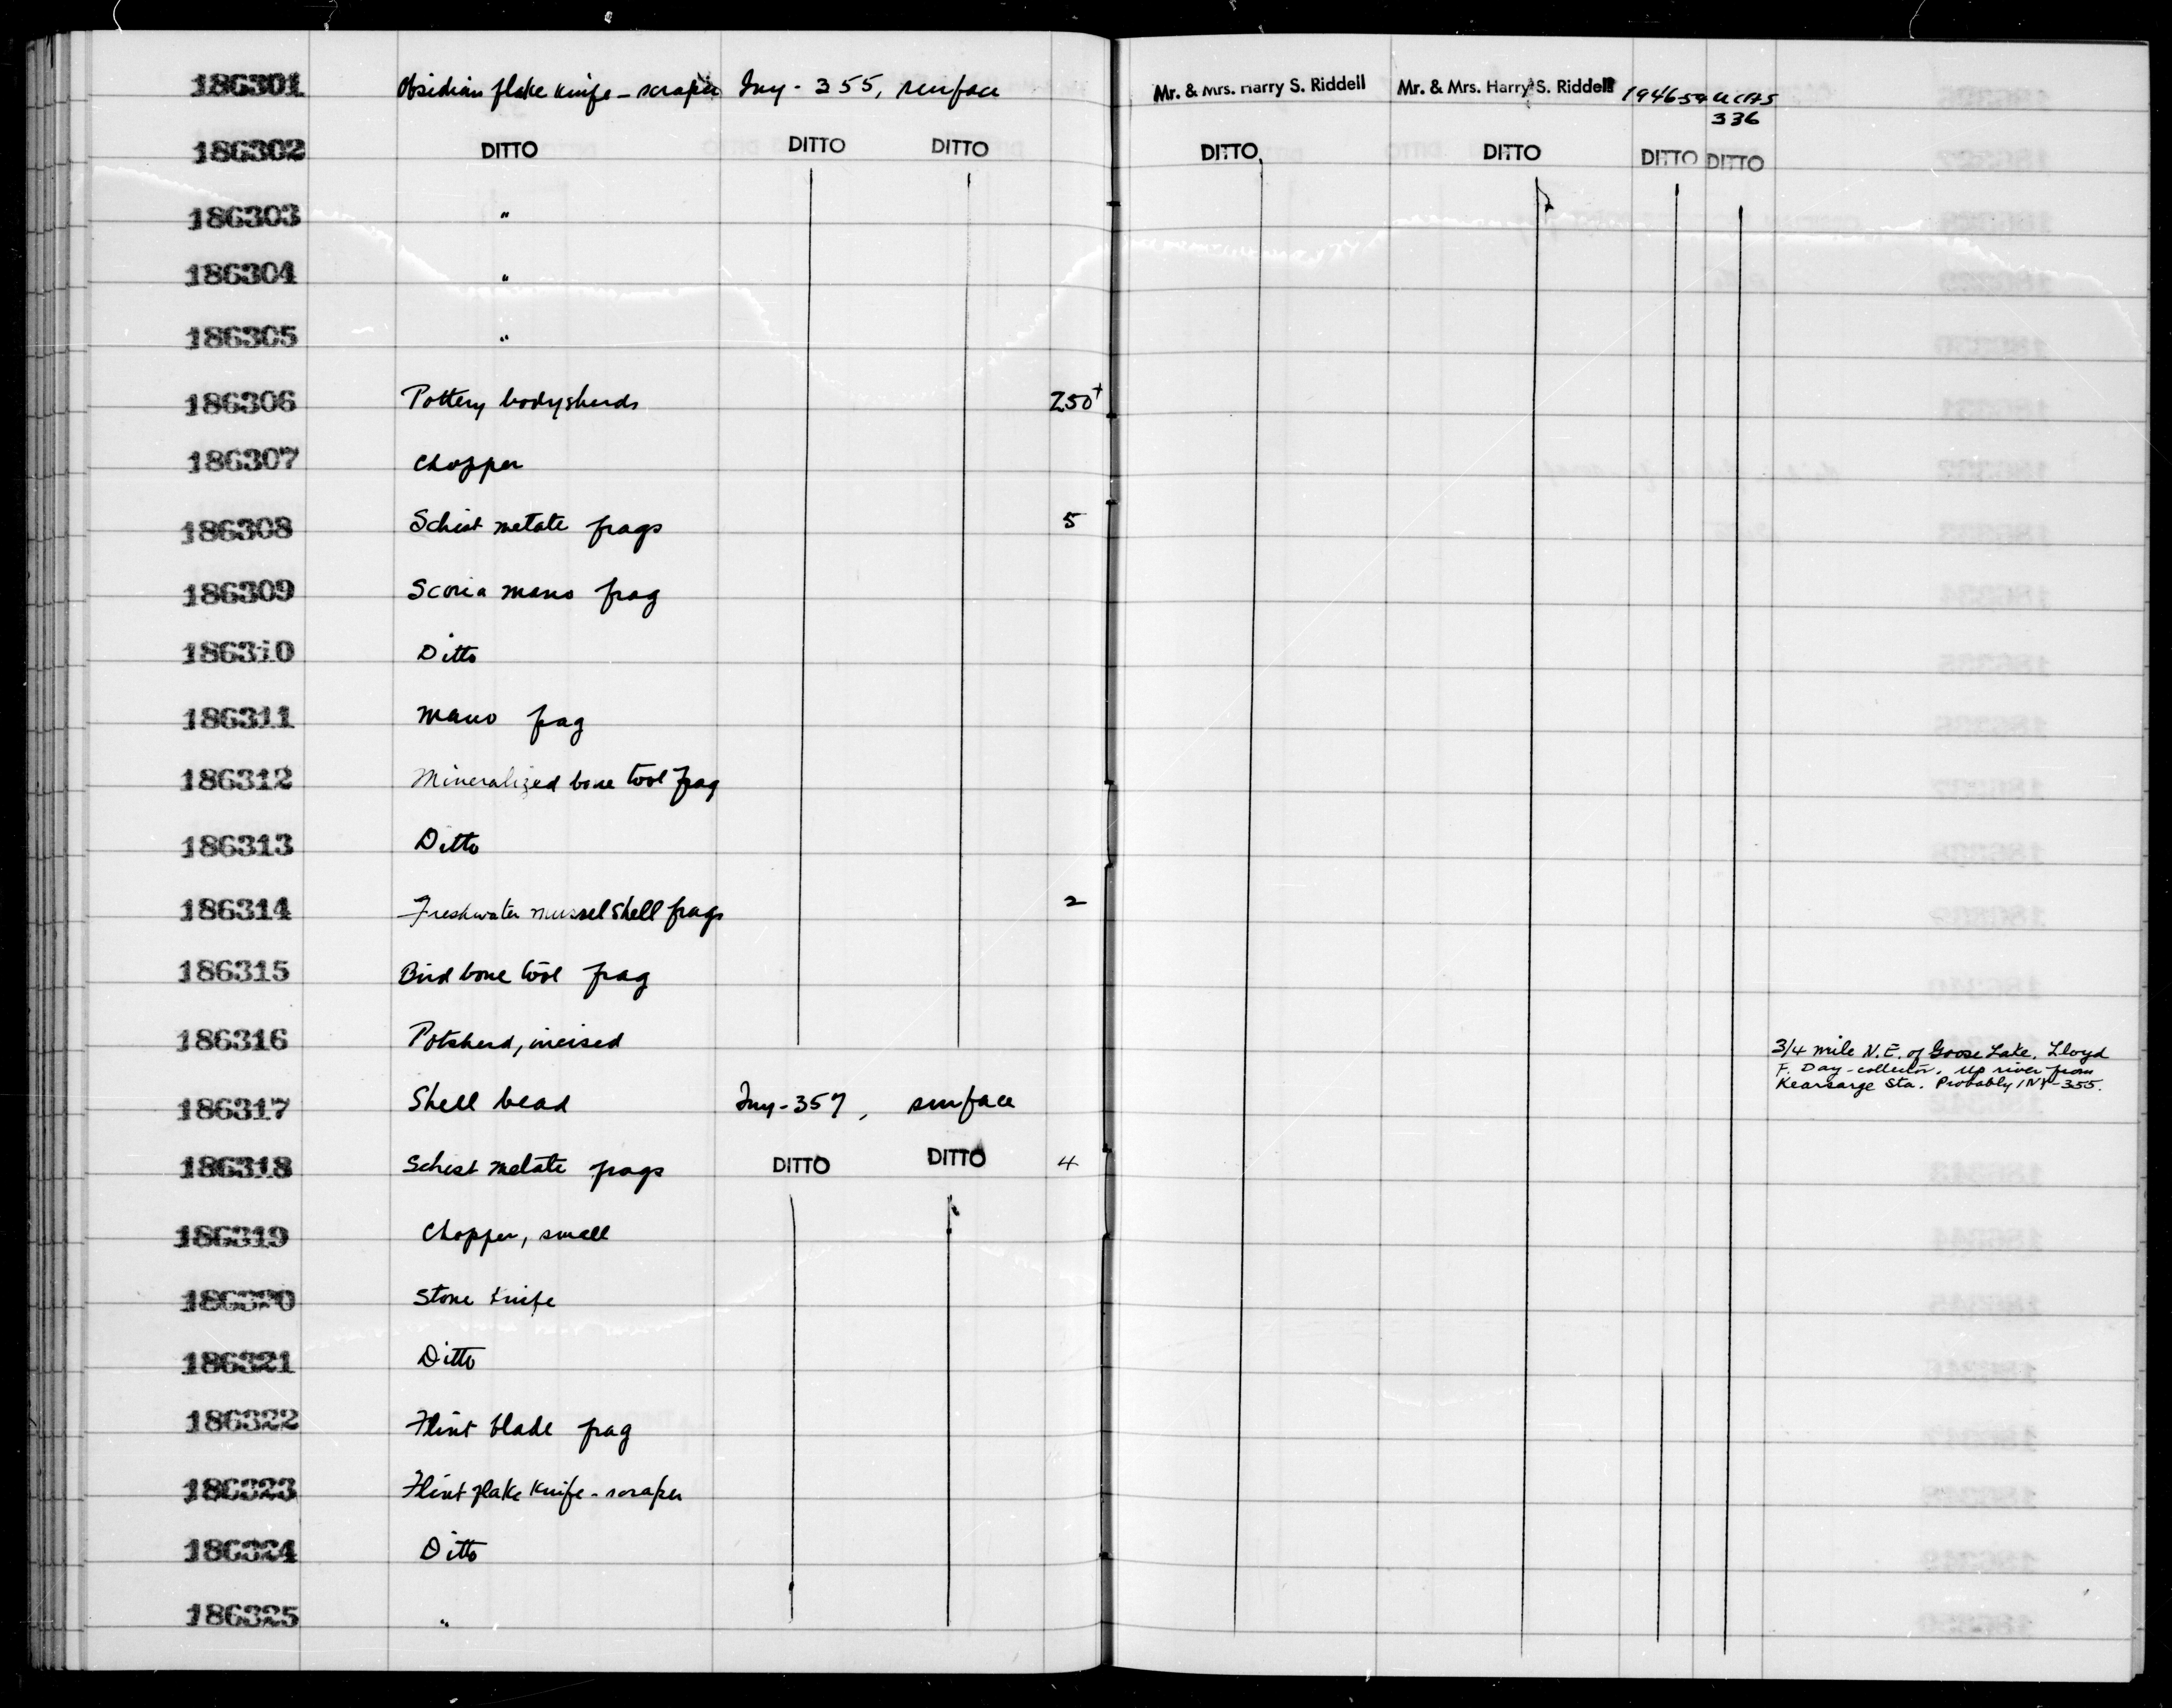 186301 Obsidian flake knife-scraper Iny-355, surface Mr. & Mrs. Harry S. Riddell Mr. & Mrs. Harry S. Riddell 1946-59 UCAS
336
186302 DITTO DITTO DITTO DITTO DITTO DITTO DITTO
186303 "
186304 "
186305 "
186306 Pottery bodysherds 250+
186307 Chopper
186308 Schist metate frags 5
186309 Scoria mano frag
186310 Ditto
186311 Mano frag
186312 Mineralized bone tool frag
186313 Ditto
186314 Freshwater mussel shell frags 2
186315 Bird bone tool frag
186316 Potsherd, incised 3/4 mile N.E. of Goose Lake. Lloyd
F. Day-collector. Up river from
Kearsarge Sta. Probably INY-355.
186317 Shell bead Iny-357, surface
186318 Schist metate frags DITTO DITTO 4
186319 Chopper, small
186320 Stone knife
186321 Ditto
186322 Flint blade frag
186323 Flint flake knife-scraper
186324 Ditto
186325 "